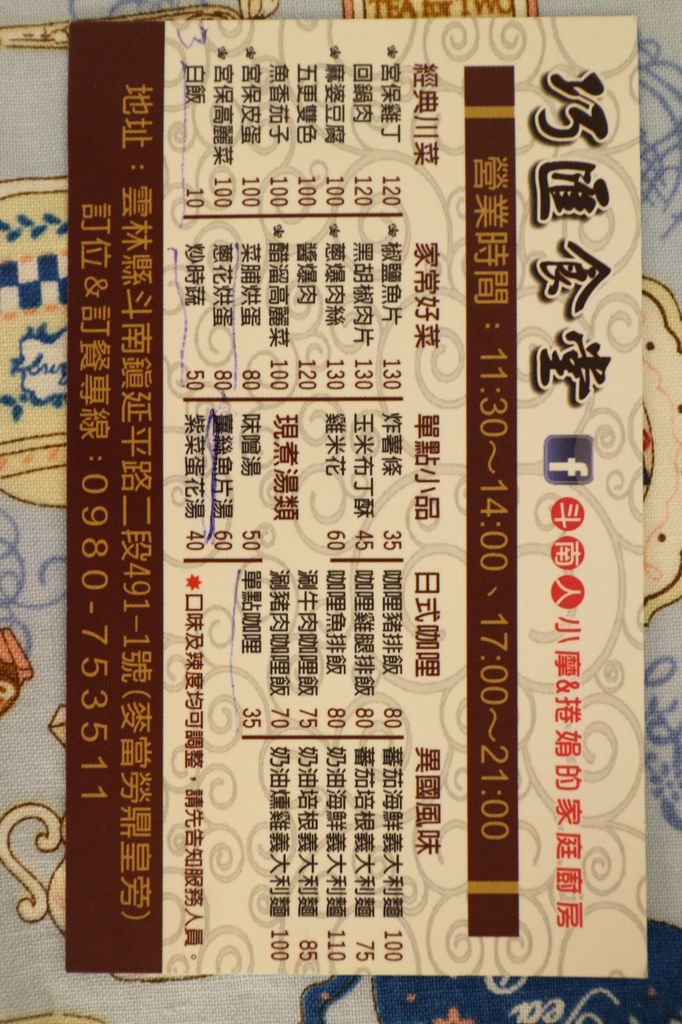 巧匯食堂
f 斗南人小摩&捲娟的家庭廚房
營業時間：11:30～14:00、17:00～21:00
經典川菜
宮保雞丁 120
回鍋肉 120
麻婆豆腐 100
五更雙色 100
魚香茄子 100
宮保皮蛋 100
宮保高麗菜 100
白飯 10
家常好菜
椒鹽魚片 130
黑胡椒肉片 130
蔥爆肉絲 130
醬爆肉 120
醋溜高麗菜 100
菜脯烘蛋 80
蔥花烘蛋 80
炒時蔬 50
單點小品
炸薯條 35
玉米布丁酥 45
雞米花 60
現煮湯類
味噌湯 50
薑絲魚片湯 60
紫菜蛋花湯 40
日式咖哩
咖哩豬排飯 80
咖哩雞腿排飯 80
咖哩魚排飯 80
涮牛肉咖哩飯 75
涮豬肉咖哩飯 70
單點咖哩 35
異國風味
蕃茄海鮮義大利麵 100
蕃茄培根義大利麵 75
奶油海鮮義大利麵 110
奶油培根義大利麵 85
奶油燻雞義大利麵 100
口味及辣度均可調整，請先告知服務人員。
地址：雲林縣斗南鎮延平路二段491-1號(麥當勞鼎皇旁)
訂位&訂餐專線：0980-753511
TEA for TWO
Tea